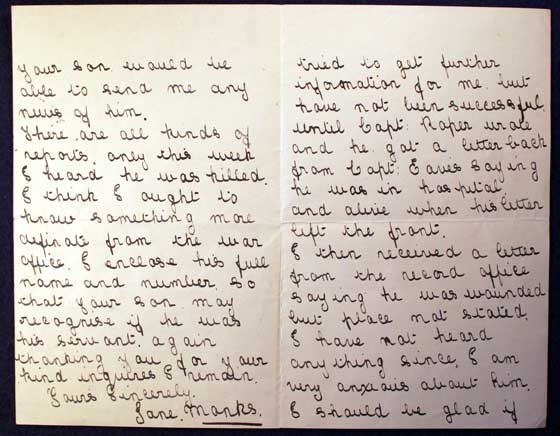 your son would be
able to send me any
news of him.
There are all kinds of
reports. only this week
I heard he was killed.
I think I ought to
know something more
definate from the war
office. I enclose his full
name and number. so
that your son may
recognise if he was
his servant. again
thanking you for your
kind inquires I remain.
Yours Sincerely.
Jane. Monks.
tried to get further
information for me. but
have not been successful.
until Capt: Roper wrote
and he got a letter back
from Capt: Eavis saying
he was in hospital
and alive when his letter
left the front.
I then received a letter
from the record office
saying he was wounded
but place not stated.
I have not heard
anything since. I am
very anxious about him.
I should be glad if